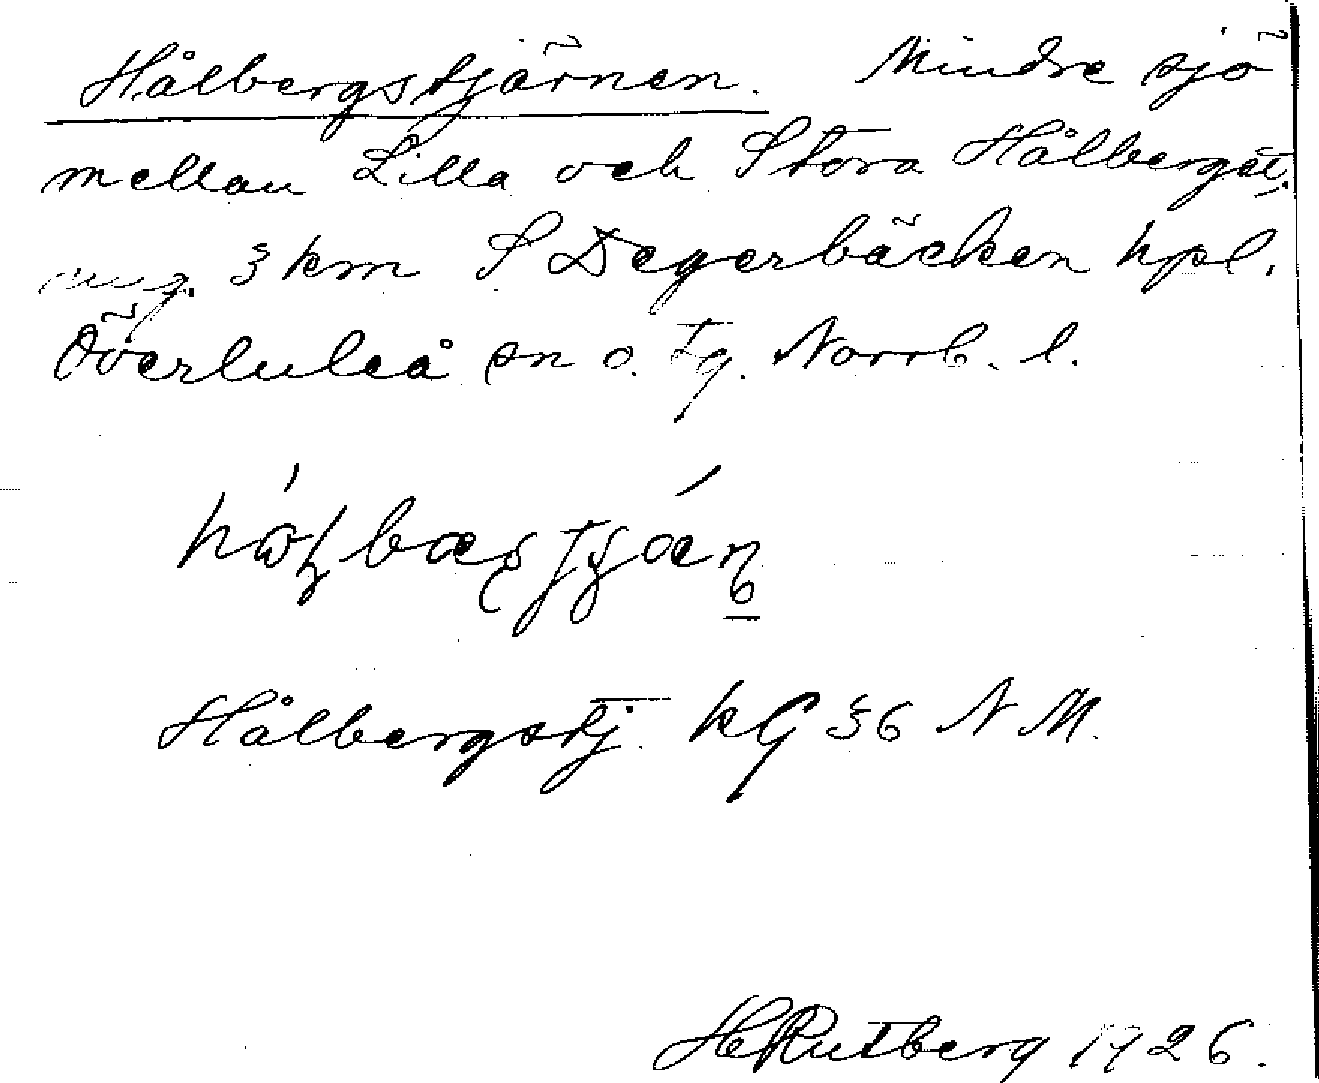 Hålbergstjärnen. Mindre sjö
mellan Lilla och Stora Hålberget,
ung. 3 km S Degerbäcken hpl.
Överluleå sn o. tg. Norrb. l.
Hålbergstj. kG 36 N M.
HRutberg 1926.